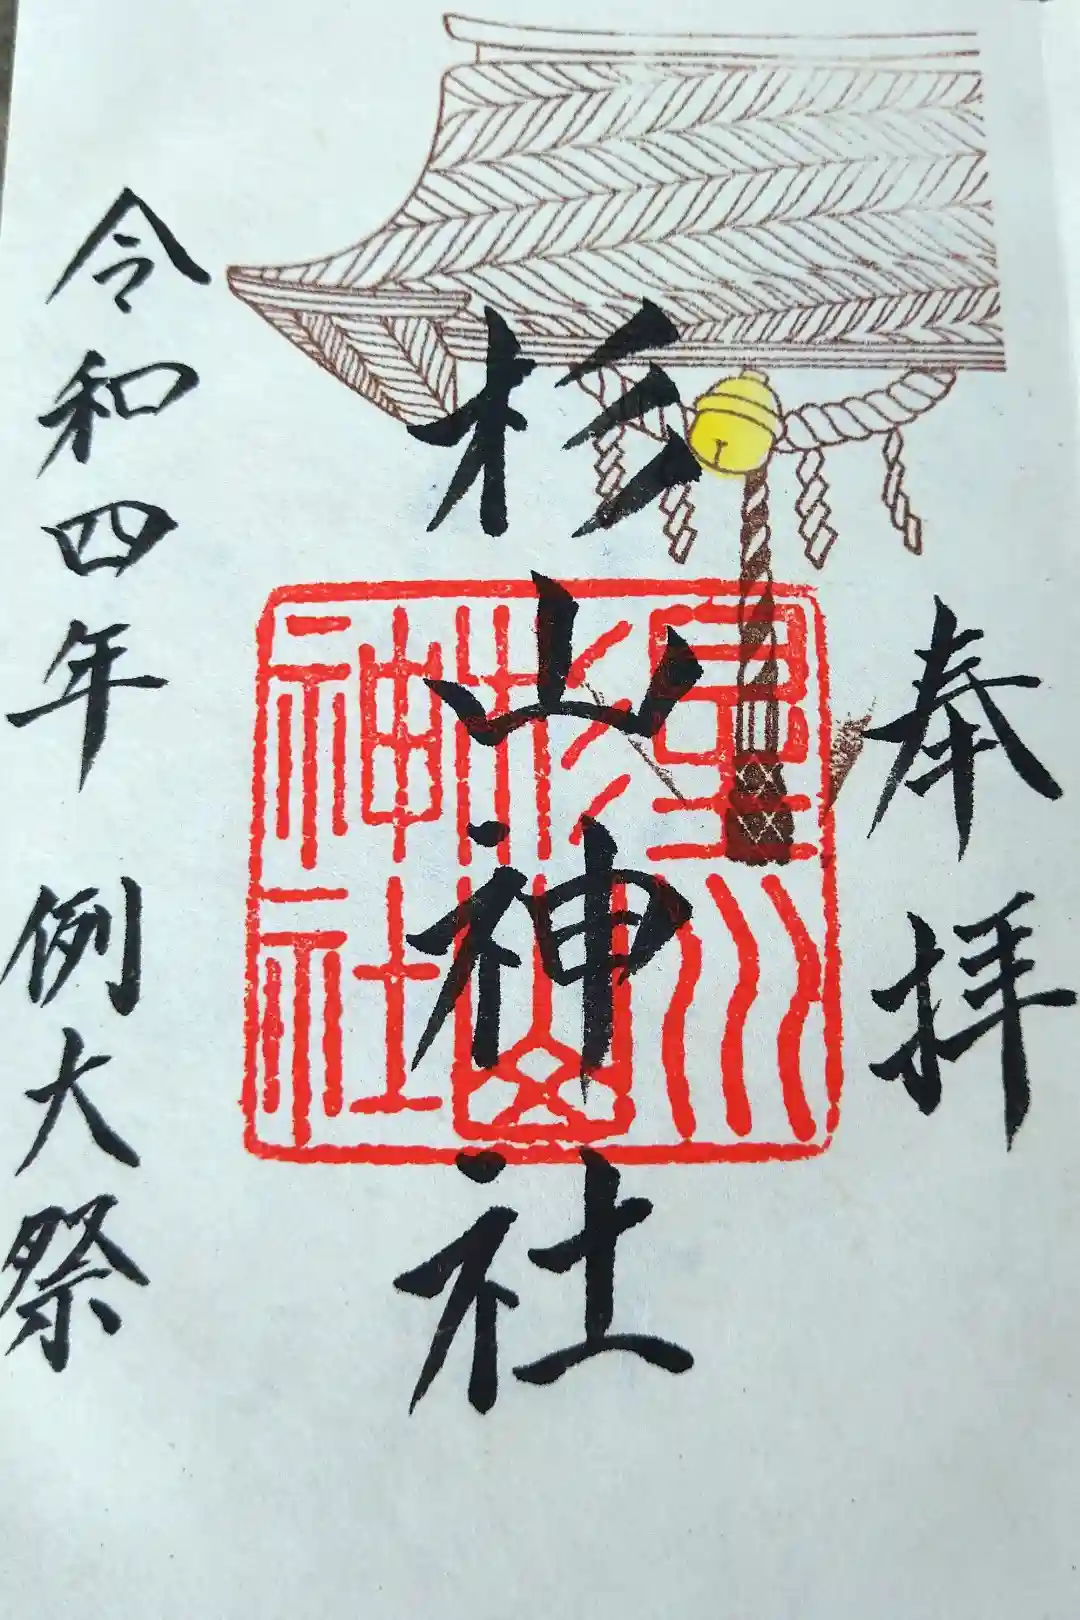 奉拝
杉山神社
星川杉山神社
令和四年 例大祭